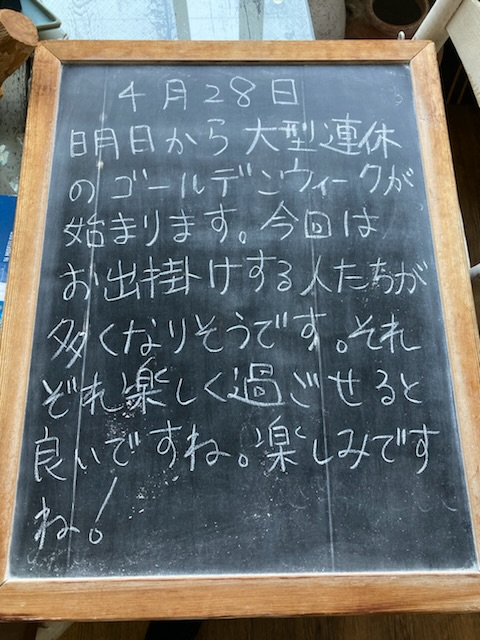 4月28日
明日から大型連休
のゴールデンウィークが
始まります。今回は
お出掛けする人たちが
多くなりそうです。それ
ぞれ楽しく過ごせると
良いですね。楽しみです
ね!